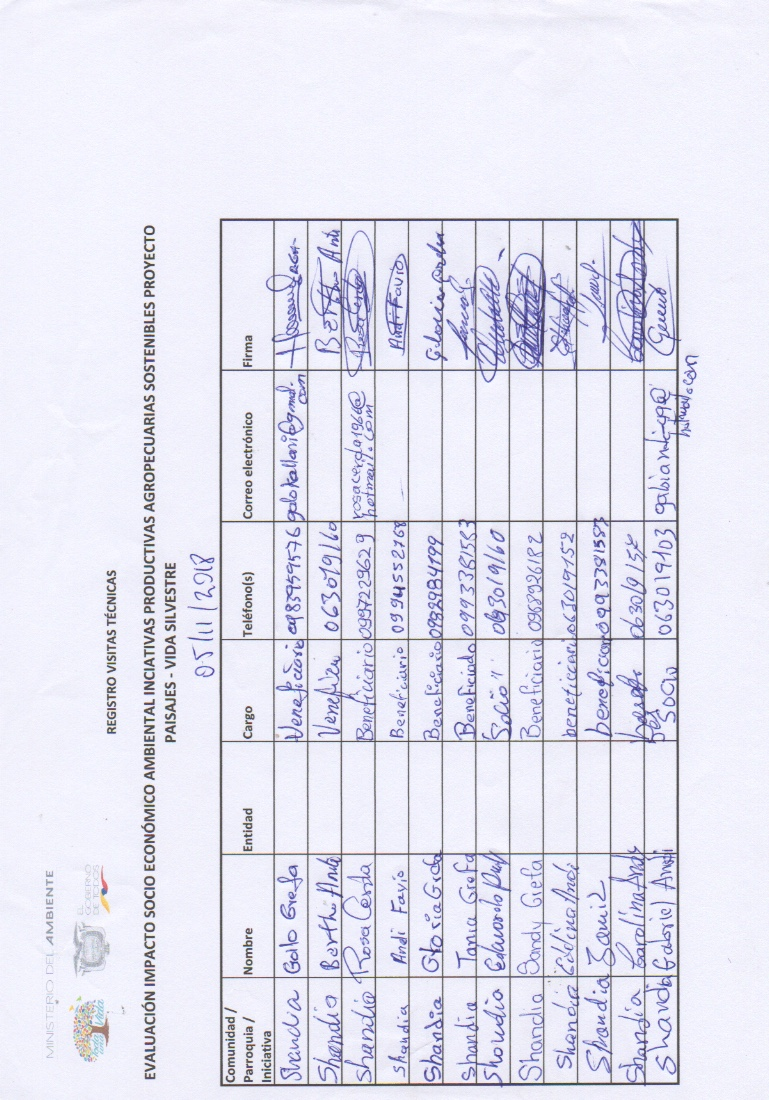 MINISTERIO DEL AMBIENTE
EL GOBIERNO DE TODOS
REGISTRO VISITAS TÉCNICAS
EVALUACIÓN IMPACTO SOCIO ECONÓMICO AMBIENTAL INCIATIVAS PRODUCTIVAS AGROPECUARIAS SOSTENIBLES PROYECTO
PAISAJES - VIDA SILVESTRE
05/11/2018
Comunidad / Parroquia / Iniciativa Nombre Entidad Cargo Teléfono(s) Correo electrónico Firma
Shandia Gallo Grefa Veneficiario 0985959576
Shandia Bertha Andi Veneficia 063019160 Bertha Andi
Shandia Rosa Cerda Beneficiario 0997229629 rosacerda1961@hotmail.com
Shandia Andi Favio Beneficiario 0994552768 Andi Favio
Shandia Gloria Grefa Beneficiario 0982984799
Shandia Tania Grefa Beneficiado 0993381583
Shandia Eduardo Socio 063019160
Shandia Sandy Grefa Beneficiario 0968926182
Shandia Andi beneficiario 063019152
Shandia beneficiario 0993381583
Shandia Carolina Andi 063019152
Shandi Gabriel Andi Socio 063019103